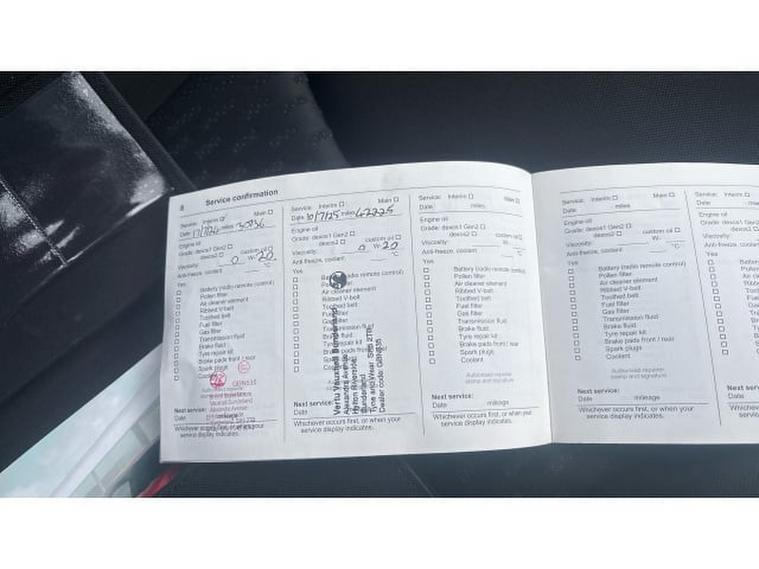 8 Service confirmation
Service: Interim Main
Date 17/7/24 miles
Engine oil
Grade: dexos1 Gen2
dexos2 custom oil
Viscosity: 0 W- 20
Anti-freeze, coolant °C
Yes
Battery (radio remote control)
Pollen filter
Air cleaner element
Ribbed V-belt
Toothed belt
Fuel filter
Gas filter
Transmission fluid
Brake fluid
Tyre repair kit
Brake pads front / rear
Spark plugs
Coolant
Next service:
Date mileage
Whichever occurs first, or when your
service display indicates.
Service: Interim Main
Date 10/7/25 miles 42225
Engine oil
Grade: dexos1 Gen2
dexos2 custom oil
Viscosity: 0 W- 20
Anti-freeze, coolant °C
Yes
Vertu Vauxhall Sunderland
Alexandra Avenue
Hylton Riverside
Sunderland
Tyne and Wear
Dealer code:
Next service:
Date mileage
Whichever occurs first, or when your
service display indicates.
Service: Interim Main
Date miles
Engine oil
Grade: dexos1 Gen2
dexos2 custom oil
Viscosity: W-
Anti-freeze, coolant °C
Yes
Battery (radio remote control)
Pollen filter
Air cleaner element
Ribbed V-belt
Toothed belt
Fuel filter
Gas filter
Transmission fluid
Brake fluid
Tyre repair kit
Brake pads front / rear
Spark plugs
Coolant
Authorised repairer
stamp and signature
Next service:
Date mileage
Whichever occurs first, or when your
service display indicates.
Service: Interim Main
Date miles
Engine oil
Grade: dexos1 Gen2
dexos2 custom oil
Viscosity: W-
Anti-freeze, coolant °C
Yes
Battery (radio remote control)
Pollen filter
Air cleaner element
Ribbed V-belt
Toothed belt
Fuel filter
Gas filter
Transmission fluid
Brake fluid
Tyre repair kit
Brake pads front / rear
Spark plugs
Coolant
Authorised repairer
stamp and signature
Next service:
Date mileage
Whichever occurs first, or when your
service display indicates.
Service:
Date
Engine oil
Grade: dexos
Viscosity:
Anti-freeze,
Yes
Next service
Date
Whichever
service